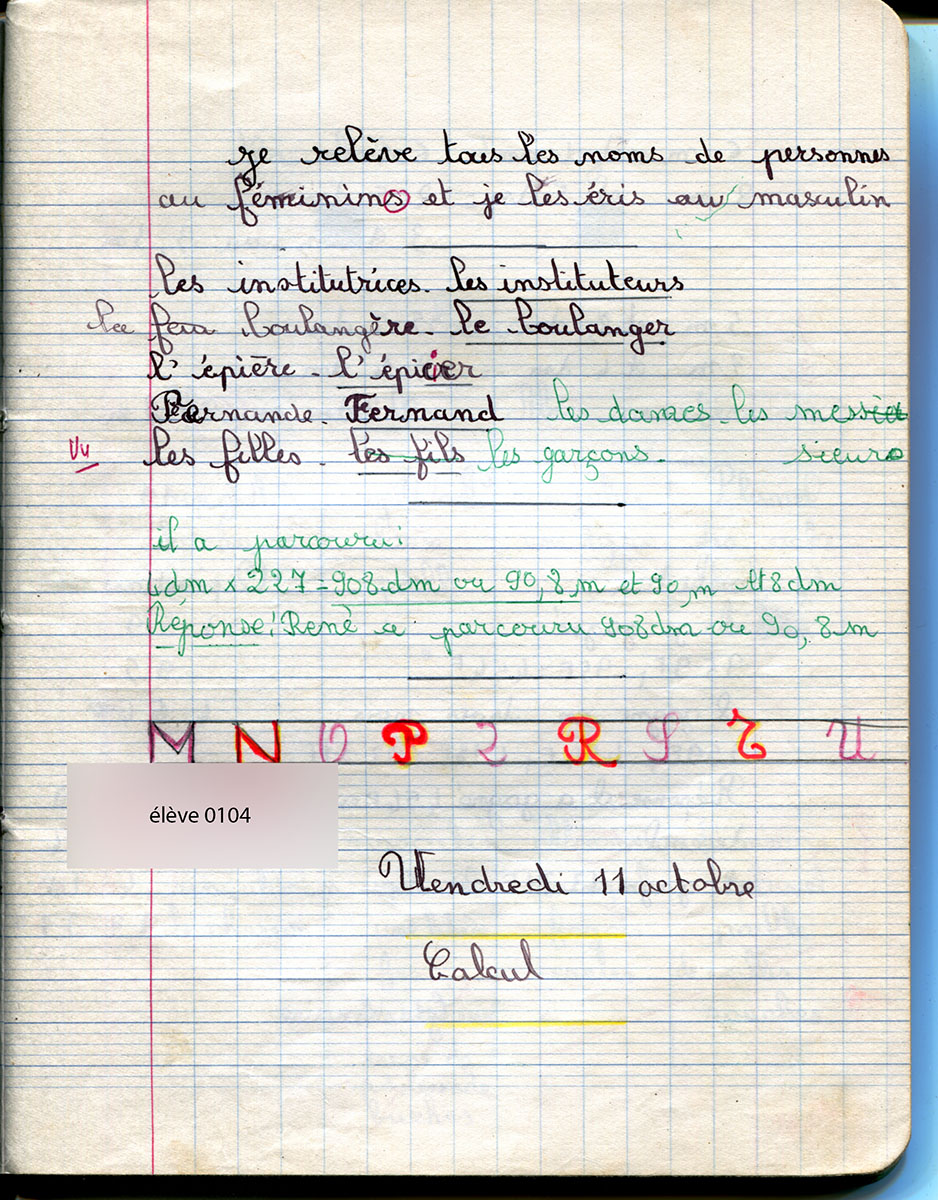 je relève tous les noms de personnes
au féminins et je les éris au masculin
les institutrices. les instituteurs
la boulangère. le boulanger
l'épière. l'épicier
Fernande. Fernand les dames. les mes
Vu les filles. les fils les garçons. sieurs
il a parcouru:
4dm x 227 = 908 dm ou 90,8 m et 90,m et 8 dm
Réponse: René a parcouru 908dm ou 90,8 m
M N O P Q R S T U
élève 0104
Vendredi 11 octobre
Calcul